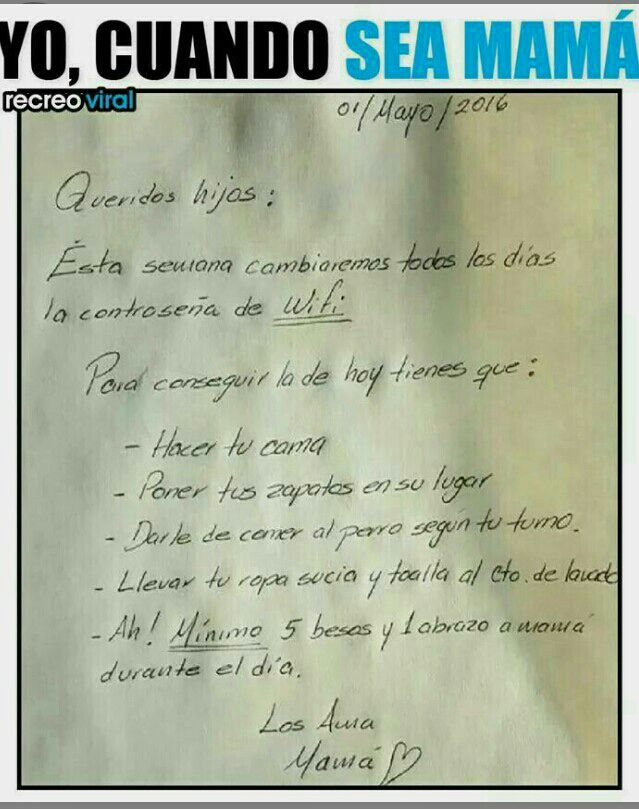 YO, CUANDO SEA MAMÁ
recreoviral
01/Mayo/2016
Queridos hijos:
Ésta semana cambiaremos todos los días
la contraseña de Wifi
Para conseguir la de hoy tienes que:
- Hacer tu cama
- Poner tus zapatos en su lugar
- Darle de comer al perro según tu turno.
- Llevar tu ropa sucia y toalla al cto. de lavado
- Ah! Mínimo 5 besos y 1 abrazo a mamá
durante el día.
Los Ama
Mamá